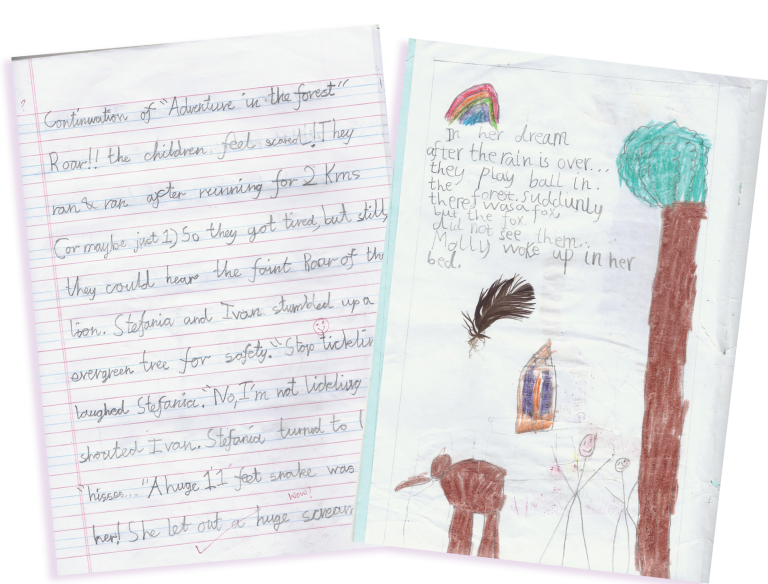 Continuation of "Adventure in the forest"
Roar!! the children feel scared!! They
ran & ran after running for 2 Kms
(or maybe just 1) So they got tired, but still,
they could hear the faint Roar of the
lion. Stefania and Ivan stumbled up a
evergreen tree for safety. "Stop ticklin
laughed Stefania. "No, I'm not tickling
shouted Ivan. Stefania turned to
"hisses... "A huge 11 feet snake was
wow!
her! She let out a huge scream
In her dream
after the rain is over...
they play ball in.
the forest. suddunly
there was a fox,
but the fox
did not see them..
Molly woke up in her
bed.